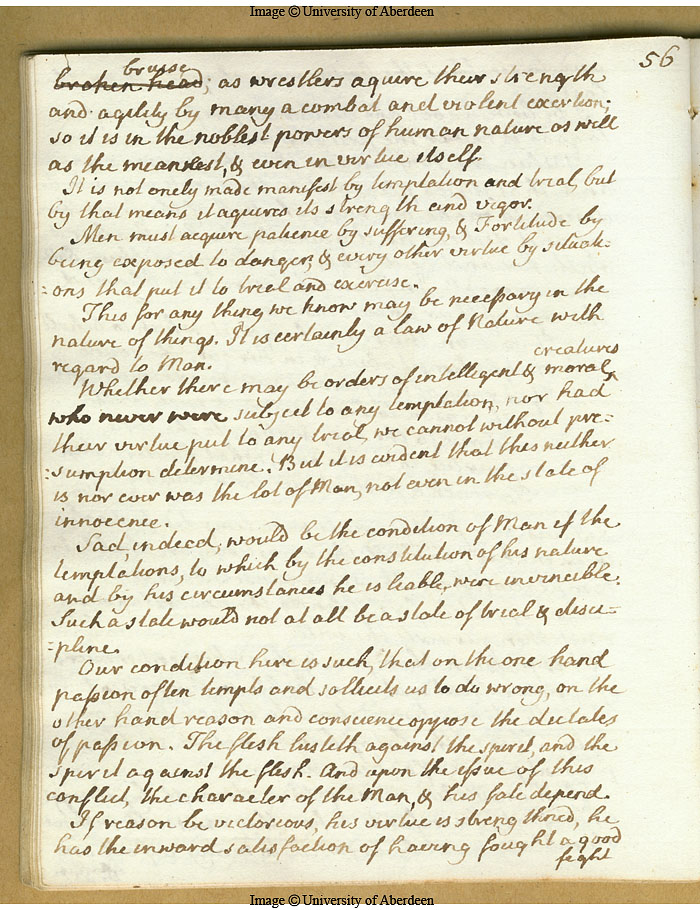 Image © University of Aberdeen
56
bruise
broken head; as wrestlers aquire their strength
and agility by many a combat and violent exertion;
so it is in the noblest powers of human nature as well
as the meannest, & even in virtue itself.
It is not onely made manifest by temptation and trial, but
by that means it aquires its strength and vigor.
Men must acquire patience by suffering, & Fortitude by
being exposed to danger, & every other virtue by situati=
=ons that put it to trial and exercise.
This for any thing we know may be necessary in the
nature of things. It is certainly a law of Nature with
regard to Man.
creatures
Whether there may be orders of intelligent & moral^
who never were subject to any temptation, nor had
their virtue put to any trial, we cannot without pre=
=sumption determine. But it is evident that this neither
is nor ever was the lot of Man, not even in the state of
innocence.
Sad indeed, would be the condition of Man if the
temptations, to which by the constitution of his nature
and by his circumstances he is liable, were invincible.
Such a state would not at all be a state of trial & disci=
=pline.
Our condition here is such, that on the one hand
passion often tempts and sollicits us to do wrong, on the
other hand reason and conscience oppose the dictates
of passion. The flesh lusteth against the spirit, and the
spirit against the flesh. And upon the issue of this
conflict, the character of the Man, & his fate depend.
If reason be victorious, his virtue is strengthned, he
has the inward satisfaction of having fought a good
fight
Image © University of Aberdeen